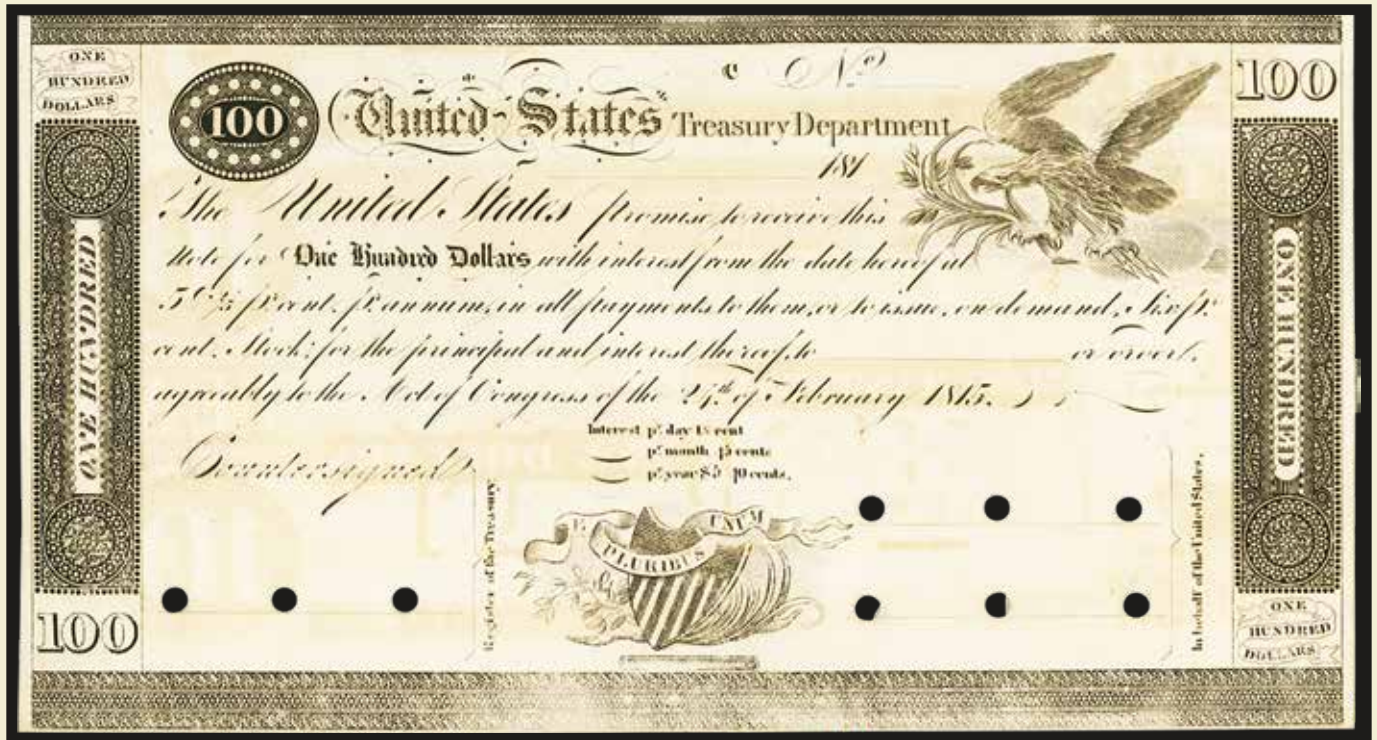 ONE
HUNDRED
DOLLARS
100
C No.
100
United States Treasury Department
181
The United States promise to receive this
Note for One Hundred Dollars with interest from the date hereof at
5 2/5 pr. cent. pr. annum, in all payments to them, or to issue, on demand, Six pr.
cent. Stock, for the principal and interest thereof, to or order,
agreeably to the Act of Congress of the 24th of February 1815.
Interest pr day 1½ cent
pr month 45 cents
pr year $5 40 cents.
Countersigned
Register of the Treasury
E PLURIBUS UNUM
In behalf of the United States.
ONE HUNDRED
ONE HUNDRED
100
ONE
HUNDRED
DOLLARS